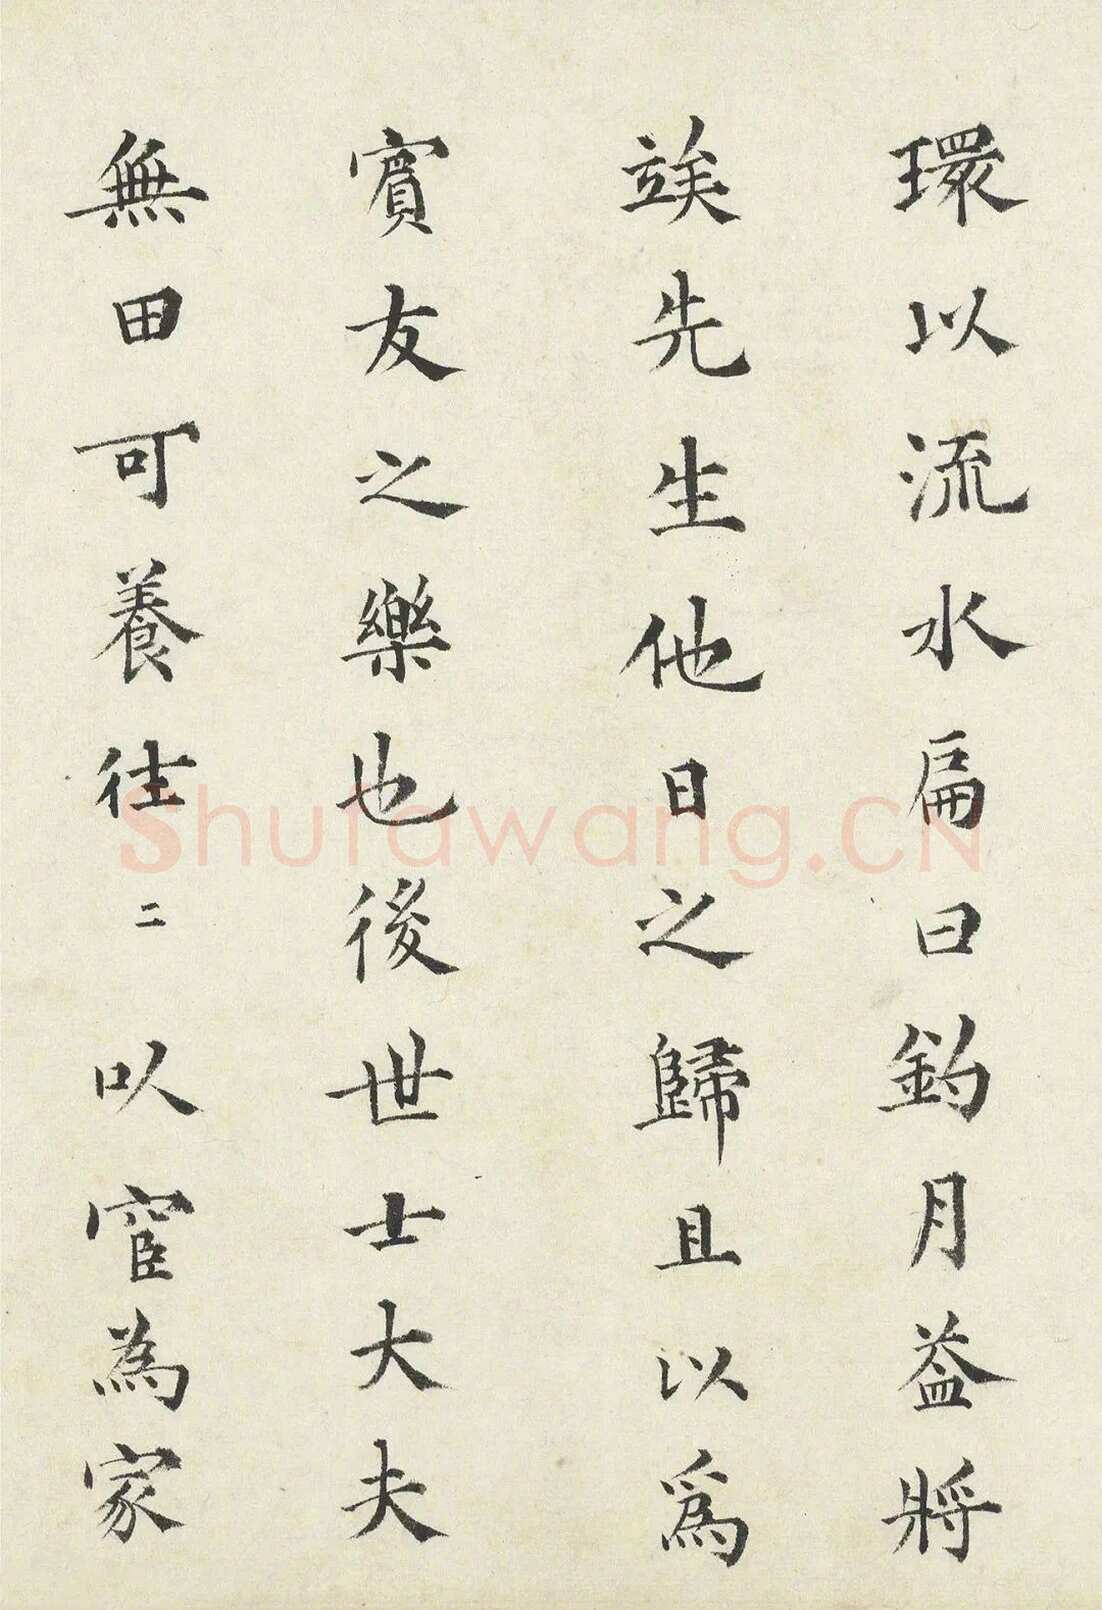 環以流水扁曰釣月益將
竢先生他日之歸且以爲
賓友之樂也後世士大夫
無田可養往二以宦為家
Shufawang.CN